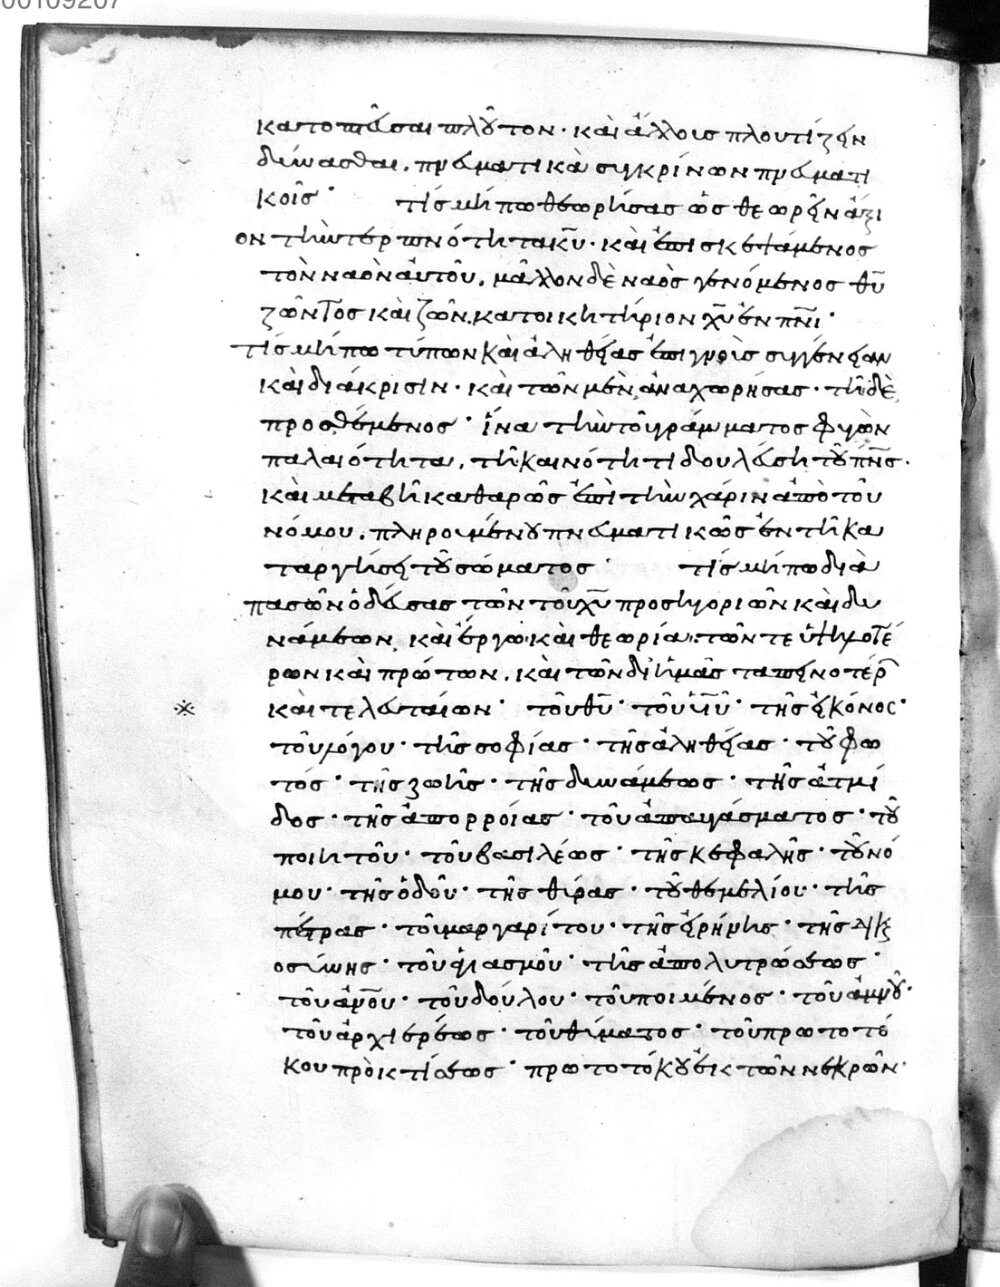 00109207
κατοπτεῦσαι πλοῦτον· καὶ ἄλλους πλουτίζειν
δύνασθαι. πνευματικὰ συγκρίνων πνευματι
κοῖς· τίς μήπω θεωρήσας ὡς θεωρεῖν ἄξι
ον τὴν τερπνότητα κυ̅· καὶ ἐπισκεψάμενος
τὸν ναὸν αὐτοῦ. μᾶλλον δὲ ναὸς γενόμενος θυ̅
ζῶντος καὶ ζῶν κατοικητήριον χυ̅ ἐν πνι̅·
τίς μήπω τύπων καὶ ἀληθείας ἐπιγνοὺς συγγένειαν
καὶ διάκρισιν· καὶ τῶν μὲν ἀναχωρήσας· τῇ δὲ
προσθέμενος· ἵνα τὴν τοῦ γράμματος φυγὼν
παλαιότητα, τῇ καινότητι δουλεύσῃ τοῦ πνς̅·
καὶ μεταβῇ καθαρῶς ἐπὶ τὴν χάριν ἀπὸ τοῦ
νόμου. πληρουμένου πνευματικῶς ἐν τῇ κα
ταργήσει τοῦ σώματος· τίς μήπω διὰ
πασῶν ὁδεύσας τῶν τοῦ χυ̅ προσηγοριῶν καὶ δυ
νάμεων, καὶ ἔργῳ καὶ θεωρίᾳ· τῶν τε ὑψηλοτέ
ρων καὶ πρώτων. καὶ τῶν δι' ἡμᾶς ταπεινοτέρ
※ καὶ τελευταίων· τοῦ θυ̅· τοῦ υἱυ̅· τῆς εἰκόνος·
τοῦ λόγου· τῆς σοφίας· τῆς ἀληθείας· τοῦ φω
τός· τῆς ζωῆς· τῆς δυνάμεως· τῆς ἀτμί
δος· τῆς ἀπορροίας· τοῦ ἀπαυγάσματος· τοῦ
ποιητοῦ· τοῦ βασιλέως· τῆς κεφαλῆς· τοῦ νό
μου· τῆς ὁδοῦ· τῆς θύρας· τοῦ θεμελίου· τῆς
πέτρας· τοῦ μαργαρίτου· τῆς εἰρήνης· τῆς δικαι
οσύνης· τοῦ ἁγιασμοῦ· τῆς ἀπολυτρώσεως·
τοῦ ἀνου̅· τοῦ δούλου· τοῦ ποιμένος· τοῦ ἀμνοῦ·
τοῦ ἀρχιερέως· τοῦ θύματος· τοῦ πρωτοτό
κου πρὸ κτίσεως· πρωτοτόκου ἐκ τῶν νεκρῶν·